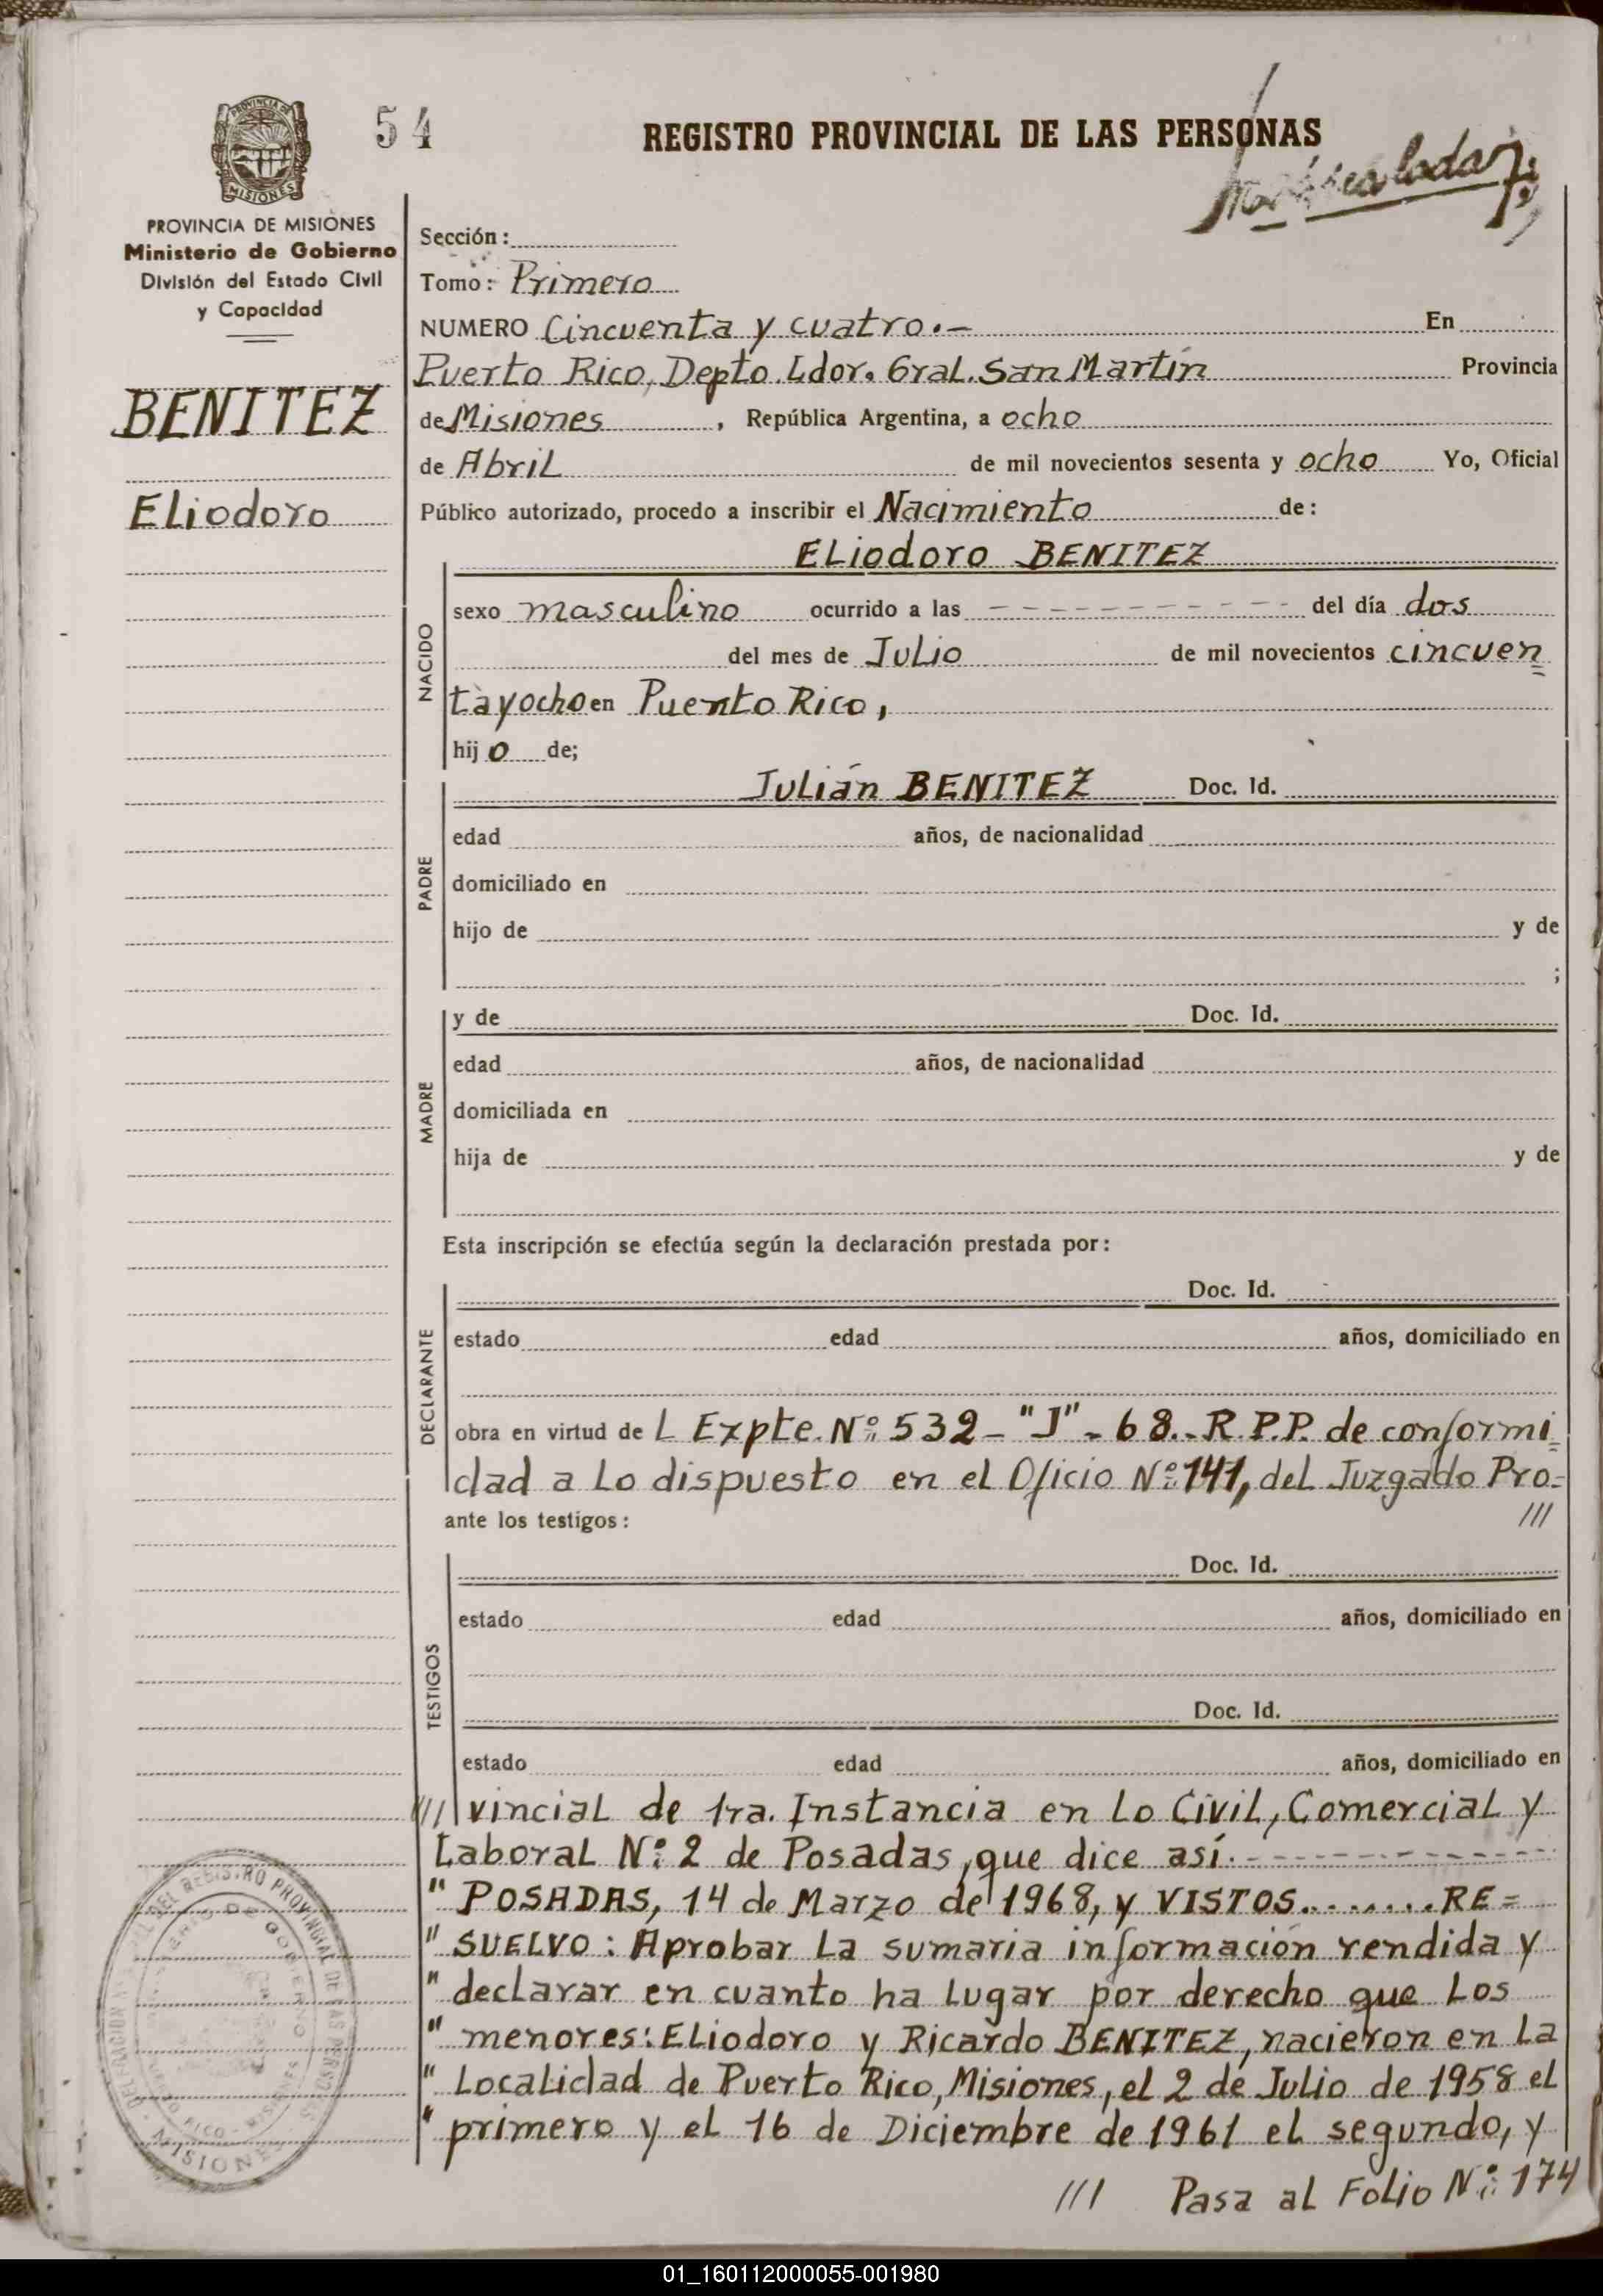 54
REGISTRO PROVINCIAL DE LAS PERSONAS
PROVINCIA DE
MISIONES
PROVINCIA DE MISIONES
Ministerio de Gobierno
División del Estado Civil
y Capacidad
BENITEZ
Eliodoro
Sección:
Tomo: Primero
NUMERO Cincuenta y cuatro.— En
Puerto Rico, Depto. Ldor. Gral. San Martín Provincia
de Misiones, República Argentina, a ocho
de Abril de mil novecientos sesenta y ocho Yo, Oficial
Público autorizado, procedo a inscribir el Nacimiento de:
NACIDO
Eliodoro BENITEZ
sexo masculino ocurrido a las - - - - - - - - - - - del día dos
del mes de Julio de mil novecientos cincuen=
ta y ocho en Puerto Rico,
hijo de;
PADRE
Julián BENITEZ Doc. Id.
edad años, de nacionalidad
domiciliado en
hijo de y de
;
MADRE
y de Doc. Id.
edad años, de nacionalidad
domiciliada en
hija de y de
Esta inscripción se efectúa según la declaración prestada por:
DECLARANTE
Doc. Id.
estado edad años, domiciliado en
obra en virtud de L Expte. Nº: 532 - "J" - 68.- R.P.P. de conformi=
dad a lo dispuesto en el Oficio Nº: 141, del Juzgado Pro=
///
ante los testigos:
TESTIGOS
Doc. Id.
estado edad años, domiciliado en
Doc. Id.
estado edad años, domiciliado en
/// vincial de 1ra. Instancia en lo Civil, Comercial y
Laboral Nº: 2 de Posadas, que dice así.- - - - - - - - - - -
" POSADAS, 14 de Marzo de 1968, y VISTOS........RE=
" SUELVO: Aprobar la sumaria información rendida y
" declarar en cuanto ha lugar por derecho que los
" menores: Eliodoro y Ricardo BENITEZ, nacieron en la
" Localidad de Puerto Rico, Misiones, el 2 de Julio de 1958 el
" primero y el 16 de Diciembre de 1961 el segundo, y
/// Pasa al Folio Nº: 174
REGISTRO PROVINCIAL DE LAS PERSONAS
DE GOBIERNO
RICO - MISIONES
MISIONES
01_160112000055-001980